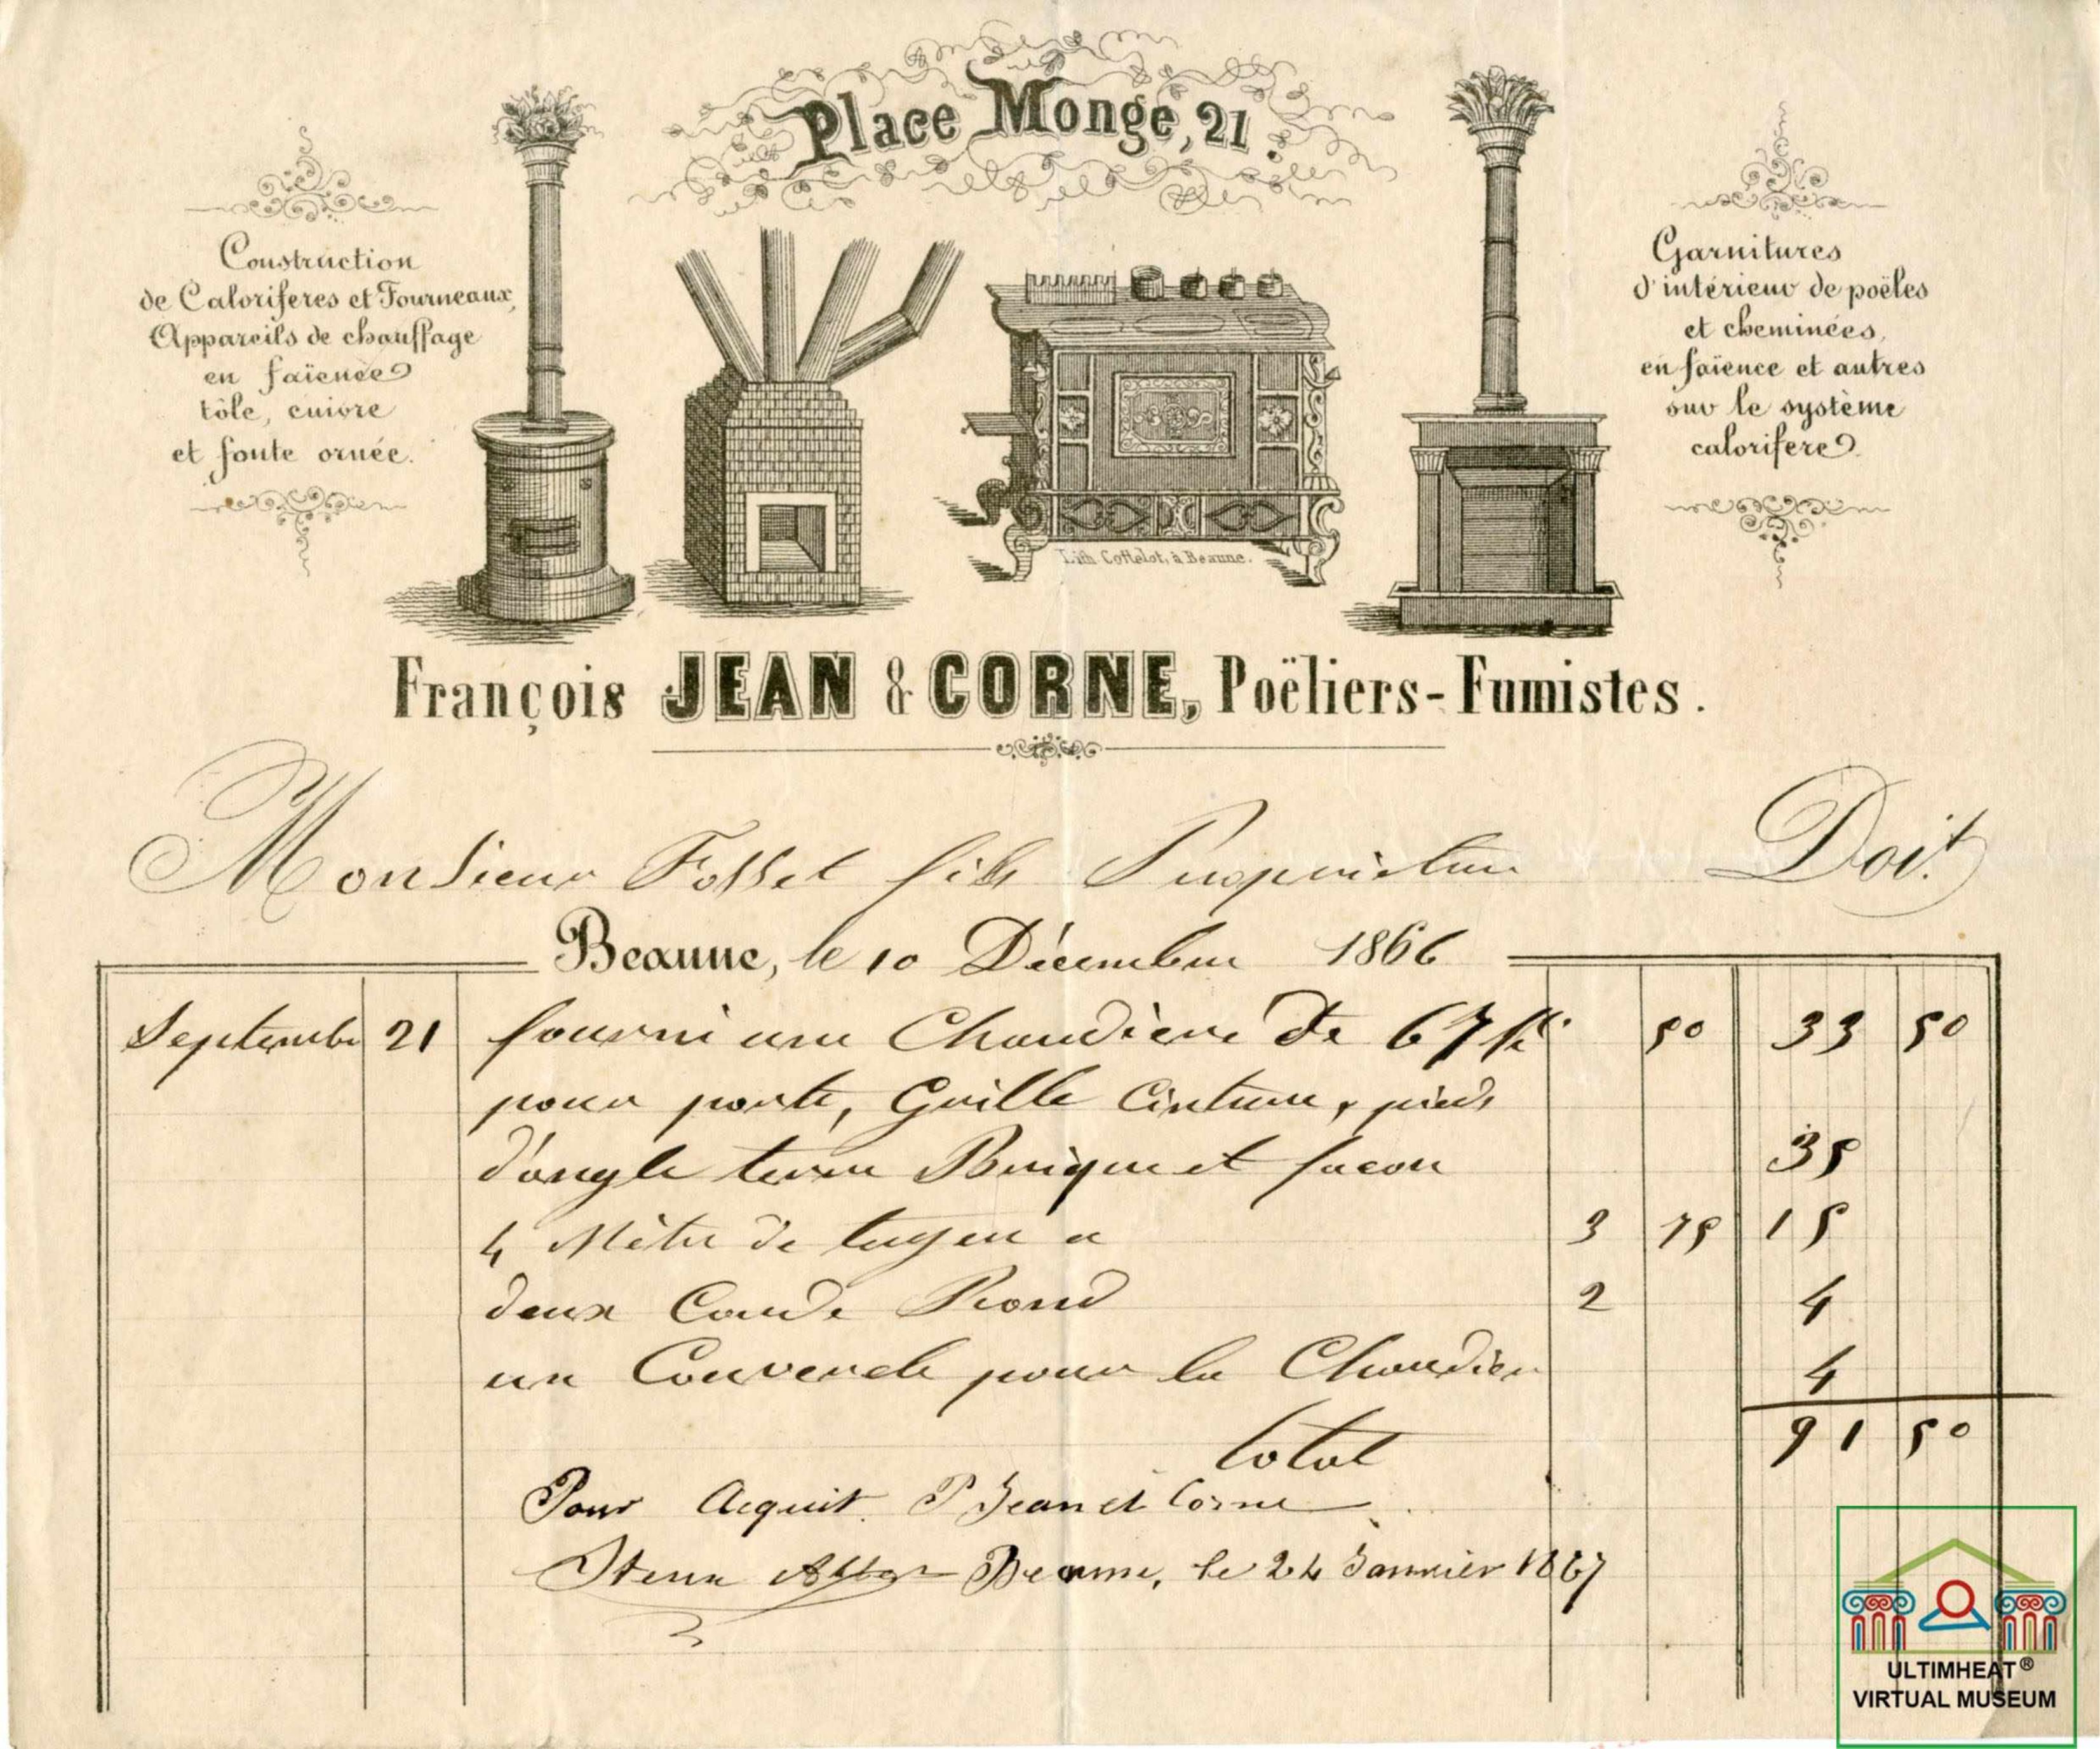 Place Monge, 21.
Construction
de Caloriferes et Fourneaux,
Appareils de chauffage
en faïence
tôle, cuivre
et fonte ornée.
Garnitures
d'intérieur de poëles
et cheminées,
en faïence et autres
sur le système
calorifere
Lith. Cottelot, à Beaune.
François JEAN & CORNE, Poëliers-Fumistes.
Monsieur Fosset fils Propriétaire Doit
Beaune, le 10 Décembre 1866
Septembre 21 fourni une Chaudiere de 67 Kl. 50 33 50
pour porte, Grille Cinture, pieds
d'angle terre Brique et facon 35
4 Mètre de tuyau a 3 75 15
deux Coude Rond 2 4
un Couvercle pour la Chaudiere 4
total 91 50
Pour Acquit. P Jean et Corne
Beaune, le 24 Janvier 1867
ULTIMHEAT®
VIRTUAL MUSEUM